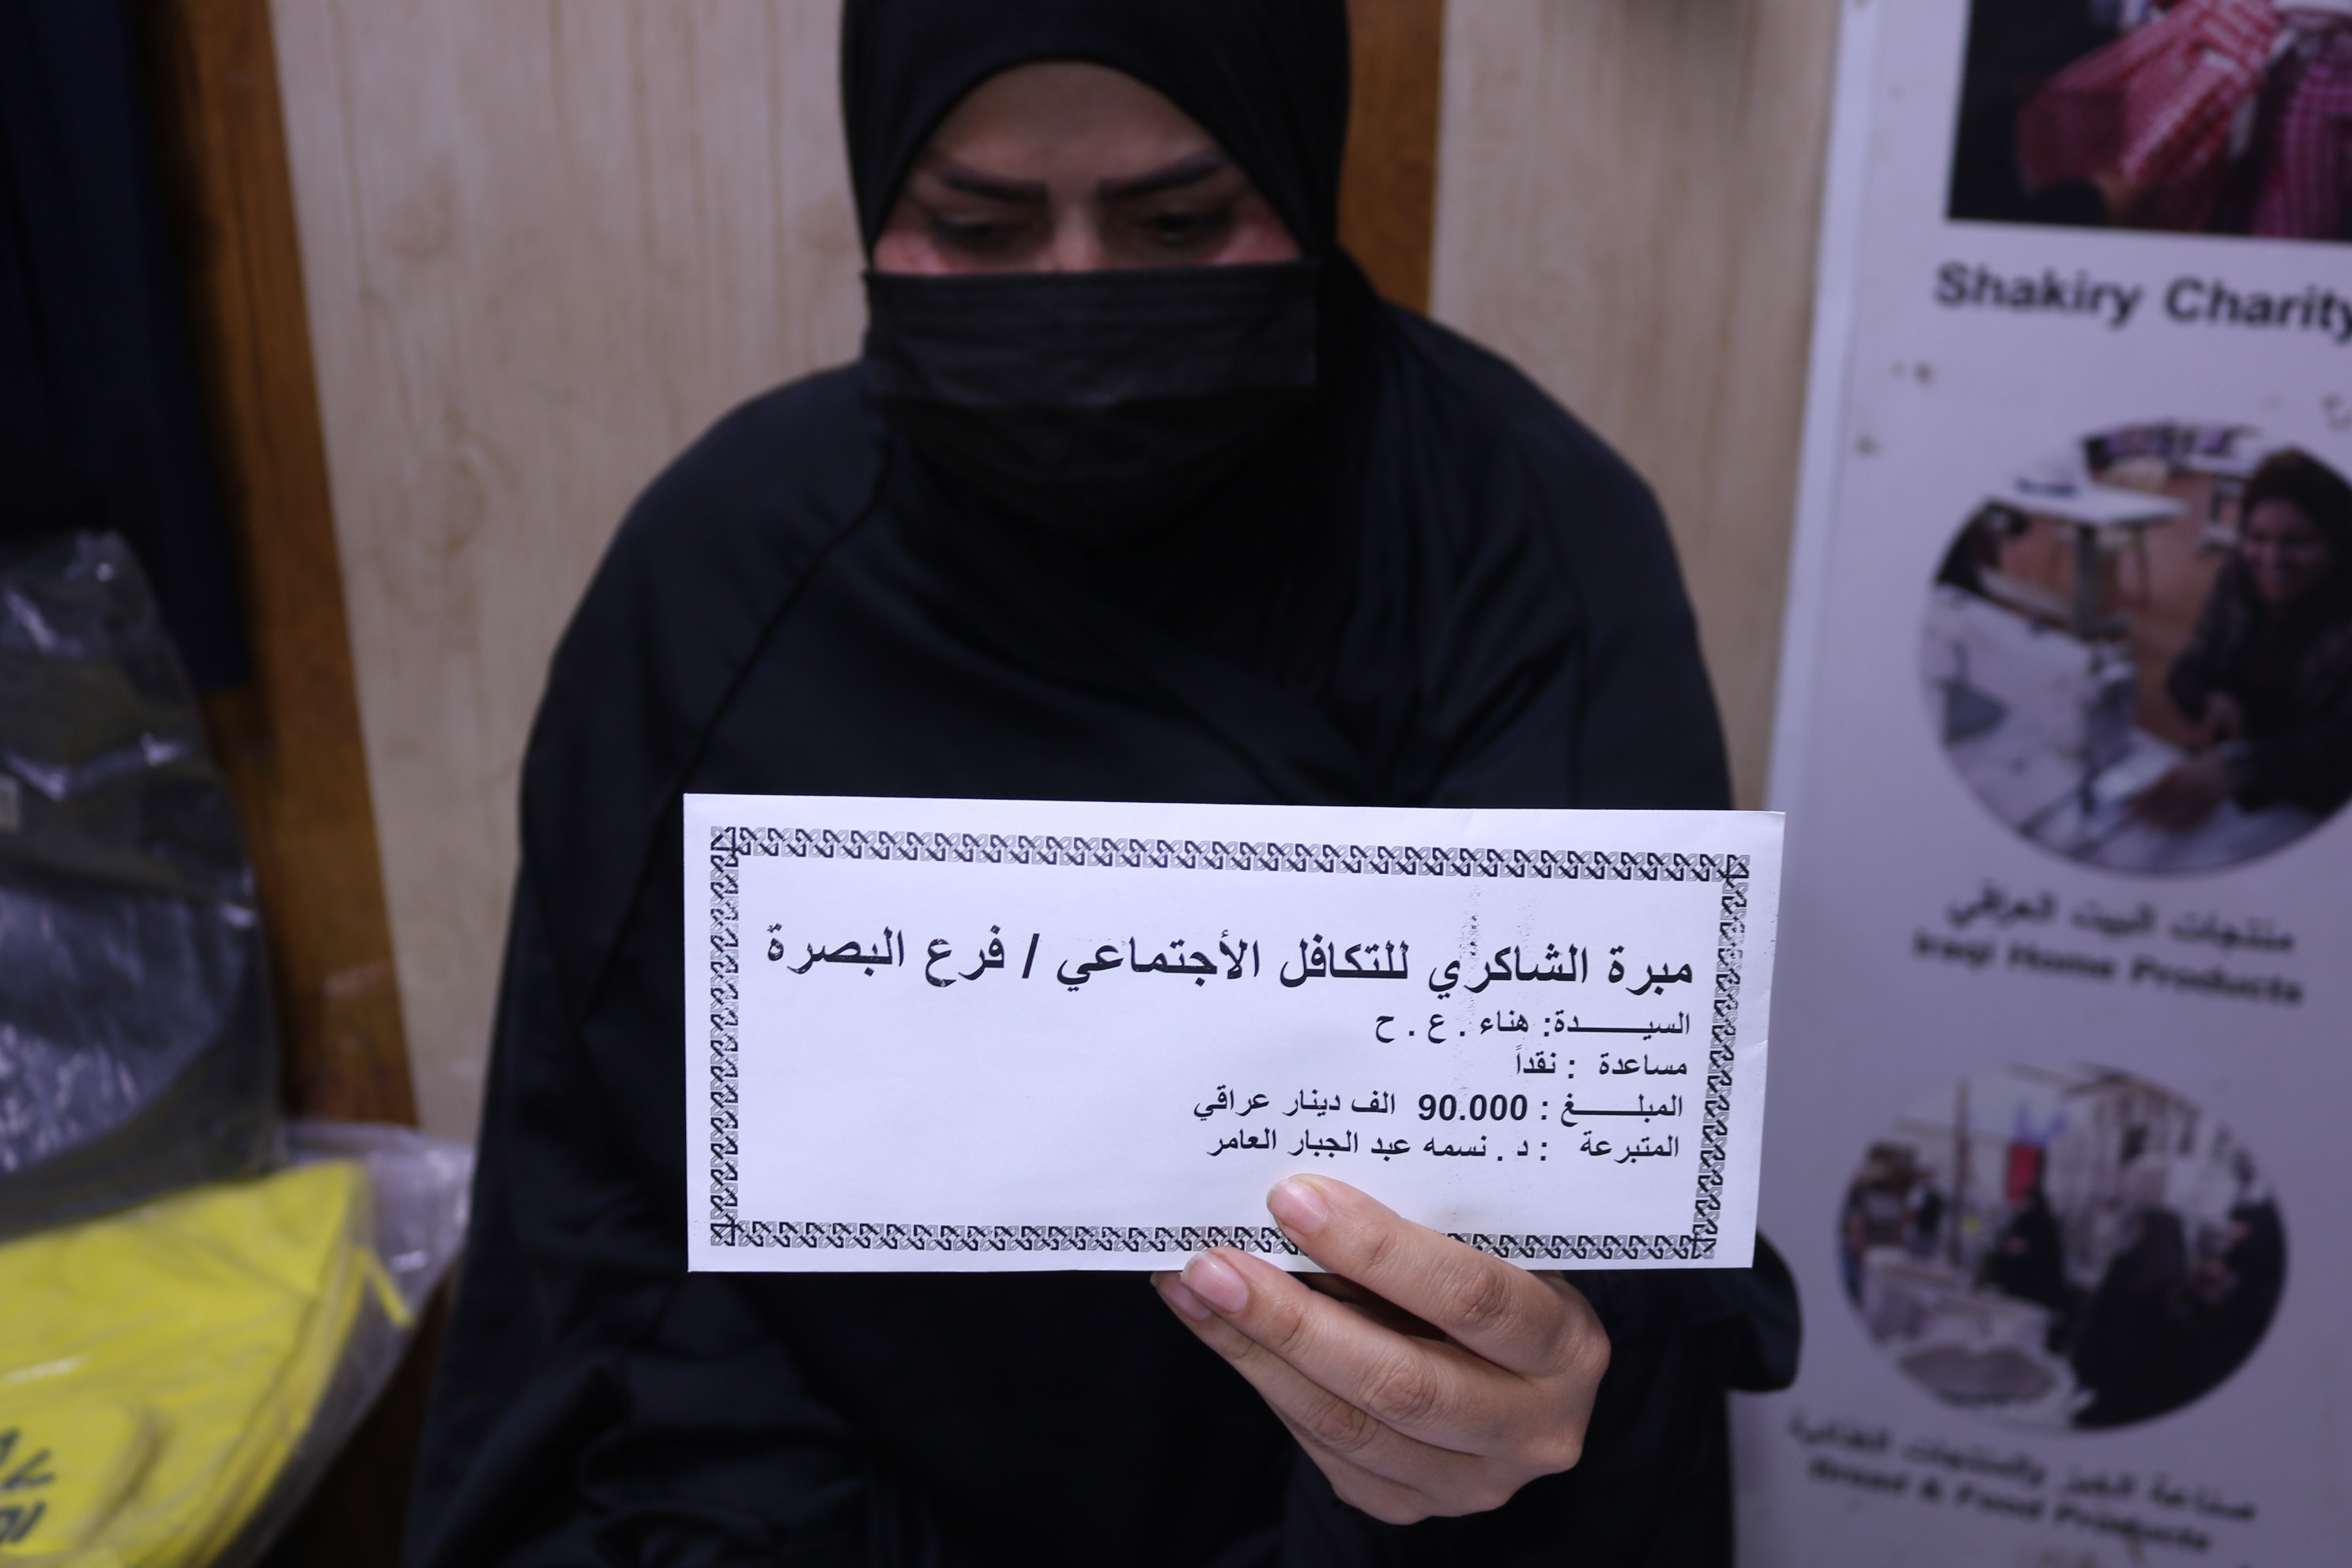 مبرة الشاكري للتكافل الأجتماعي / فرع البصرة
السيـــــــدة: هناء . ع . ح
مساعدة : نقداً
المبلـــــغ : 90.000 الف دينار عراقي
المتبرعة : د . نسمه عبد الجبار العامر
Shakiry Charity
منتجات البيت العراقي
Iraqi Home Products
صناعة الخبز والمنتجات الغذائية
Bread & Food Products